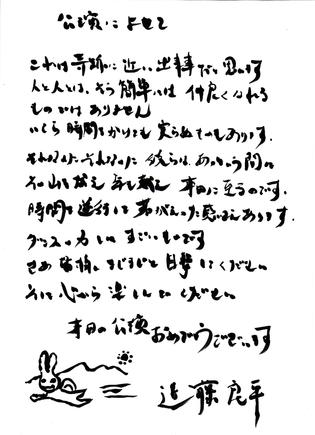 公演によせて
これは奇跡に近い出来事だと思います
人と人とは、そう簡単には仲良くなれる
ものではありません
いくら時間をかけても実らぬものもあります。
それなのに、それなのに 彼らは、あっという間に
山も越え 年も越え 本日に至るのです。
時間を逆行して若がえった感さえあります。
ダンスの力 は すごいものです
さあ 皆様、まじまじと目撃してください
そして心から楽しんでください
本日の公演おめでとうございます
近藤良平